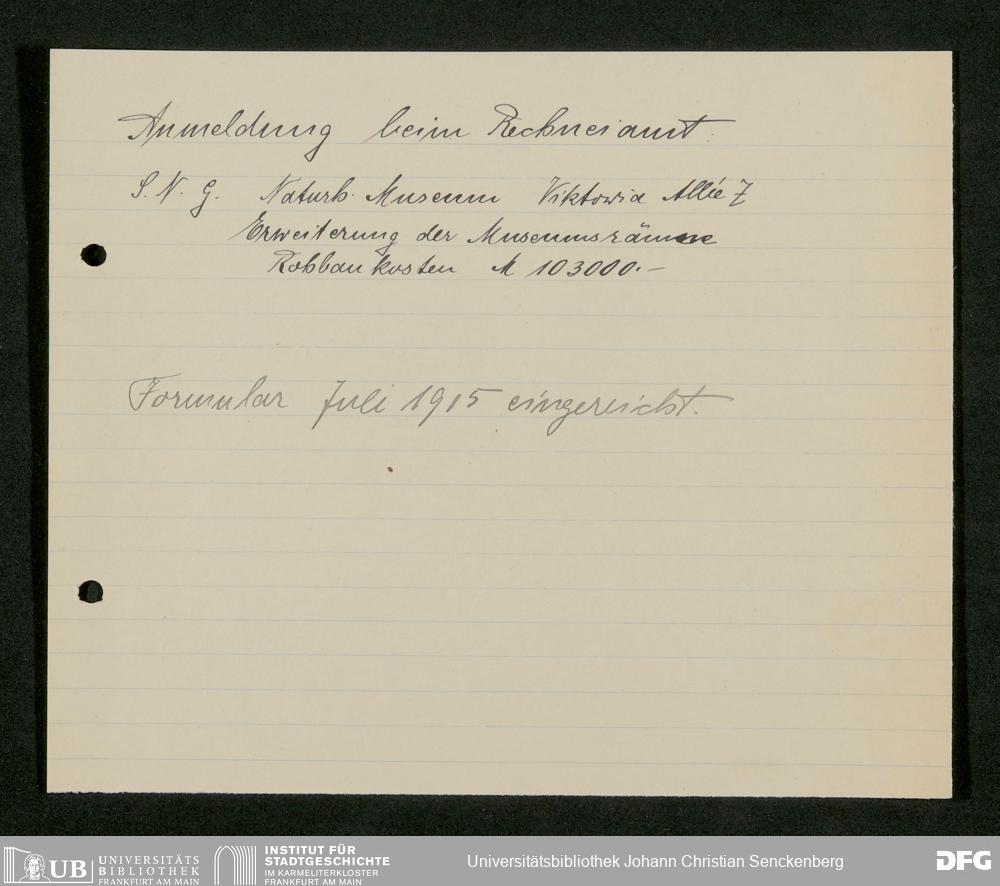 Anmeldung beim Rechneiamt.
S. N. G. Naturh. Museum Viktoria Allée 7
Erweiterung der Museumsräume
Rohbaukosten M 103000.–
Formular Juli 1915 eingereicht.
UB UNIVERSITÄTS
BIBLIOTHEK
FRANKFURT AM MAIN
INSTITUT FÜR
STADTGESCHICHTE
IM KARMELITERKLOSTER
FRANKFURT AM MAIN
Universitätsbibliothek Johann Christian Senckenberg
DFG